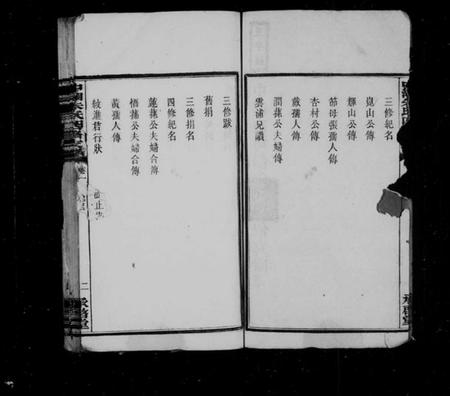 三修紀名
崑山公傳
輝山公傳
節母張孺人傳
杏村公傳
戴孺人傳
潤蓀公夫婦傳
雲浦兄讖
三修跋
舊捐
三修捐名
四修紀名
蓮蓀公夫婦合傳
悟蓀公夫婦合傳
黃孺人傳
紋進君行狀
卷一
二